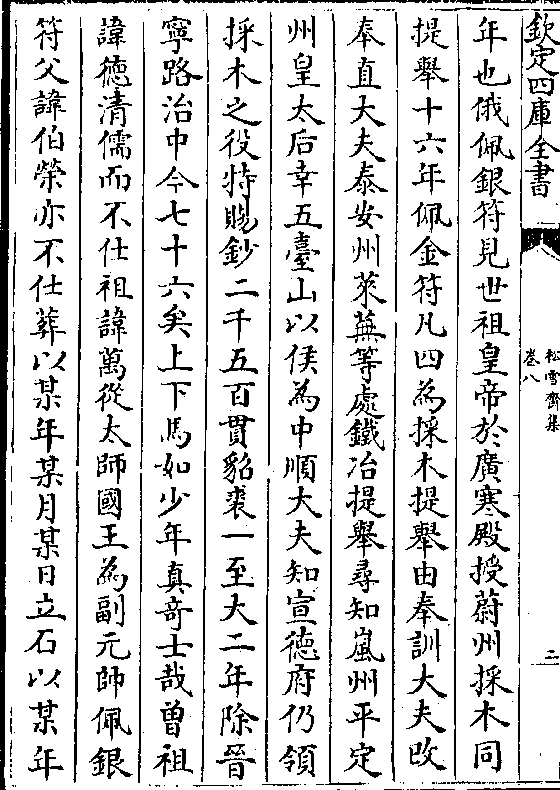 欽定四庫全書
松雪齋集
卷八
二
年也俄佩銀符見世祖皇帝於廣寒殿授蔚州採木同
提舉十六年佩金符凡四為採木提舉由奉訓大夫改
奉直大夫泰安州萊蕪等處鐵冶提舉尋知嵐州平定
州皇太后幸五臺山以侯為中順大夫知宣德府仍領
採木之役特賜鈔二千五百貫貂裘一至大二年除晉
寧路治中今七十六矣上下馬如少年真竒士哉曽祖
諱德清儒而不仕祖諱萬從太師國王為副元帥佩銀
符父諱伯榮亦不仕葬以某年某月某日立石以某年